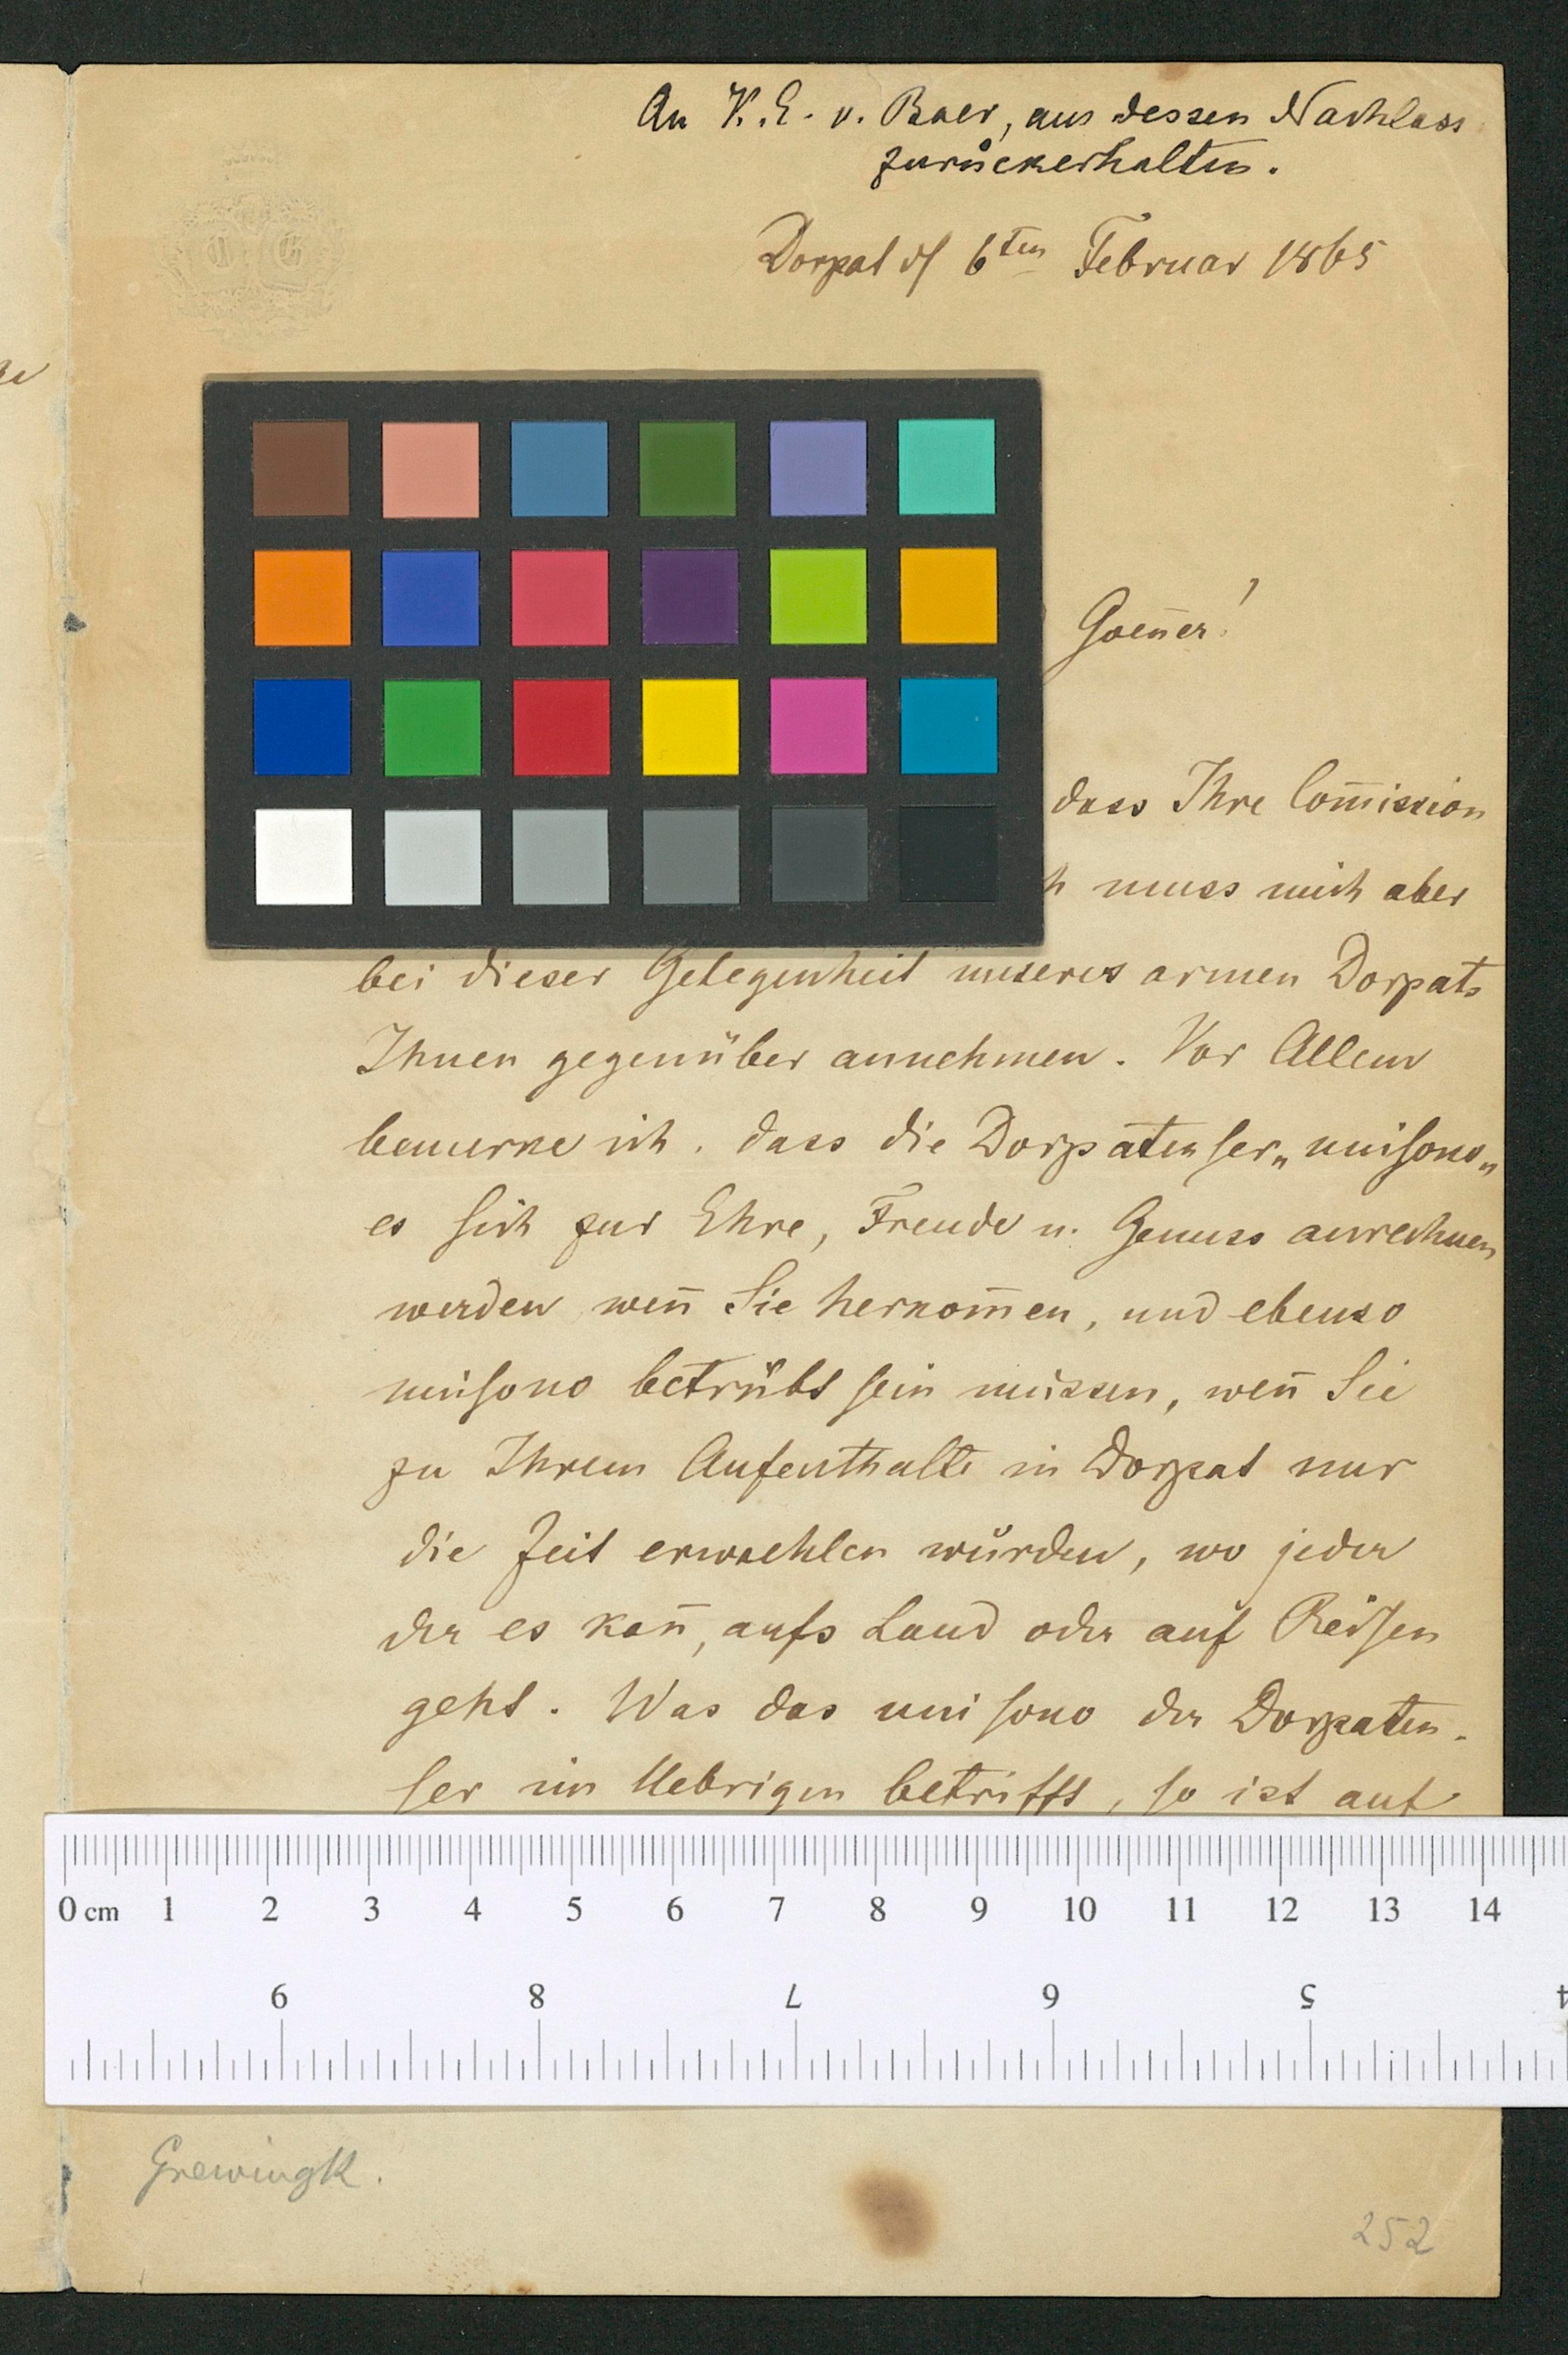 An K. E. v. Baer, aus dessen Nachlass
zurückerhalten.
Dorpat d 6ten Februar 1865
Goen̄er!
dass Ihre Com̄ission
h muss mich aber
bei dieser Gelegenheit unseres armen Dorpats
Ihnen gegenüber annehmen. Vor Allem
bemerke ich, dass die Dorpatenser „unisono„
es sich zur Ehre, Freude u. Genuss anrechnen
werden wen̄ Sie herkom̄en, und ebenso
unisono betrübt sein müssen, wen̄ Sie
zu Ihrem Aufenthalte in Dorpat nur
die Zeit erwaehlen würden, wo jeder
der es kan̄, aufs Land oder auf Reisen
geht. Was das unisono der Dorpaten-
ser im Uebrigen betrifft, so ist auf
0 cm 1 2 3 4 5 6 7 8 9 10 11 12 13 14
9 8 7 6 5 4
Grewingk.
252